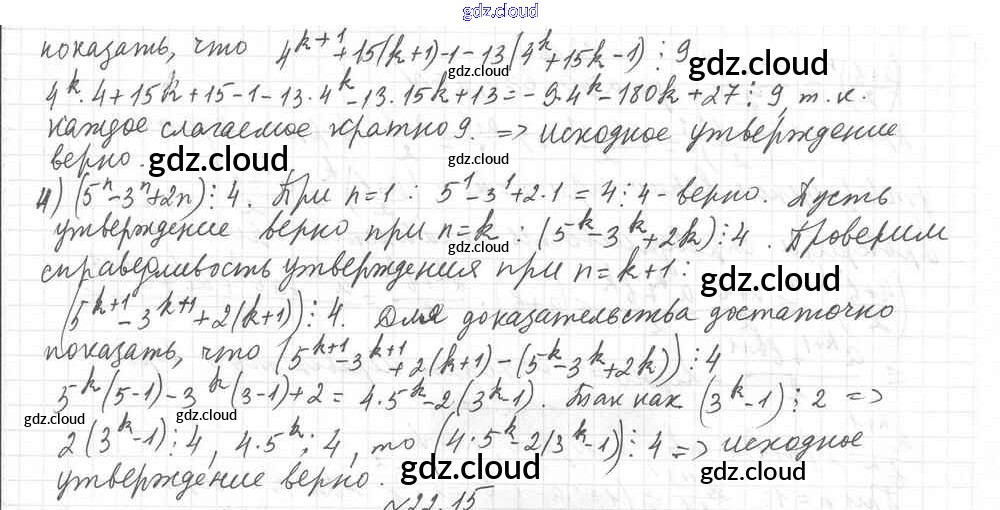 gdz.cloud
показать, что 4^{k+1}+15(k+1)-1-13(4^k+15k-1)⋮9
4^k·4+15k+15-1-13·4^k-13·15k+13=-9·4^k-180k+27⋮9, т.к.
каждое слагаемое кратно 9. => исходное утверждение
верно.
4) (5^n-3^n+2n)⋮4. При n=1: 5^1-3^1+2·1=4⋮4-верно. Пусть
утверждение верно при n=k: (5^k-3^k+2k)⋮4. Проверим
справедливость утверждения при n=k+1:
(5^{k+1}-3^{k+1}+2(k+1))⋮4. Для доказательства достаточно
показать, что (5^{k+1}-3^{k+1}+2(k+1)-(5^k-3^k+2k))⋮4
5^k(5-1)-3^k(3-1)+2=4·5^k-2(3^k-1). Так как (3^k-1)⋮2 =>
2(3^k-1)⋮4, 4·5^k⋮4, то (4·5^k-2(3^k-1))⋮4 => исходное
утверждение верно.
№22.15
gdz.cloud
gdz.cloud
gdz.cloud
gdz.cloud
gdz.cloud
gdz.cloud
gdz.cloud
gdz.cloud
gdz.cloud
gdz.cloud
gdz.cloud